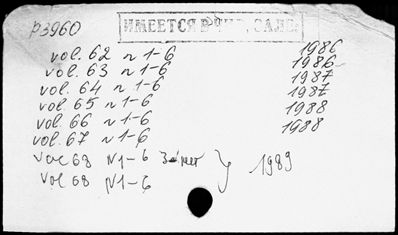 р3960
ИМЕЕТСЯ В ЧИТ. ЗАЛЕ
vol. 62 n 1-6 1986
vol. 63 n 1-6 1986
vol. 64 n 1-6 1987
vol. 65 n 1-6 1987
vol. 66 n 1-6 1988
vol. 67 n 1-6 1988
vol 68 N1-6 1989
vol 68 N1-6